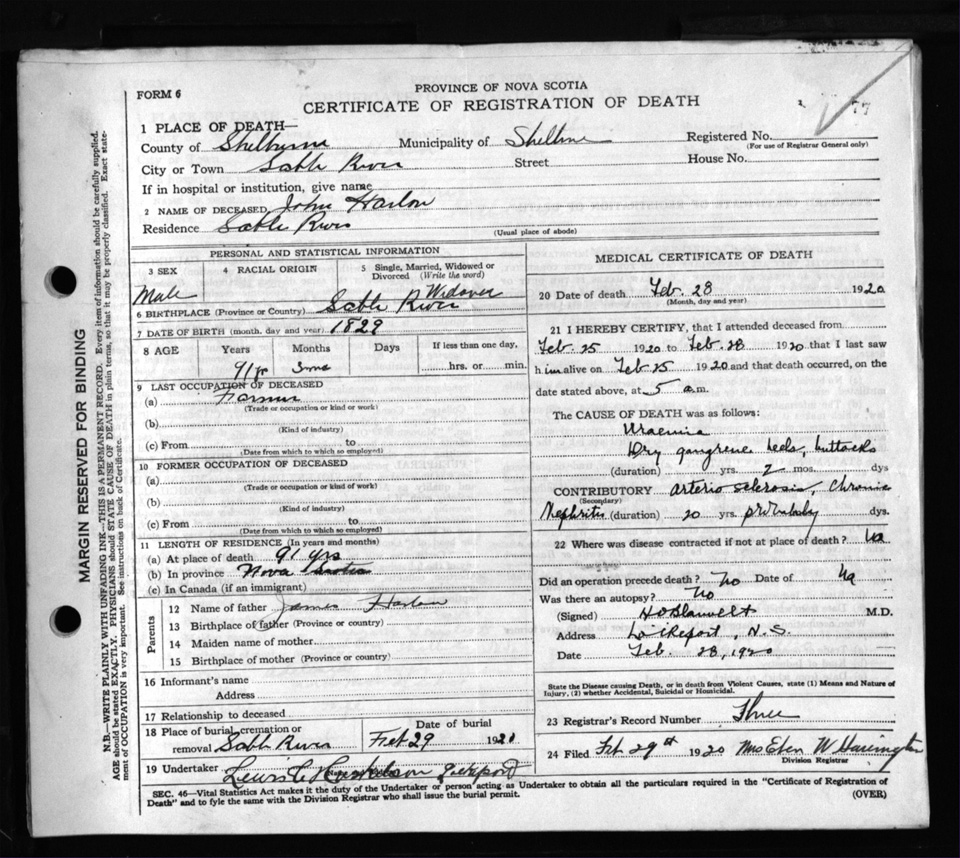 PROVINCE OF NOVA SCOTIA
FORM 6
CERTIFICATE OF REGISTRATION OF DEATH
77
1 PLACE OF DEATH—
County of Shelburne Municipality of Shelburne Registered No.
(For use of Registrar General only)
City or Town Sable River Street House No.
If in hospital or institution, give name
2 NAME OF DECEASED John Harlow
Residence Sable River
(Usual place of abode)
PERSONAL AND STATISTICAL INFORMATION
3 SEX 4 RACIAL ORIGIN 5 Single, Married, Widowed or Divorced (Write the word)
Male Widower
6 BIRTHPLACE (Province or Country) Sable River
7 DATE OF BIRTH (month, day and year) 1829
8 AGE Years Months Days If less than one day,
91 yr 3 mo hrs. or min.
9 LAST OCCUPATION OF DECEASED
(a) Farmer
(Trade or occupation or kind or work)
(b)
(Kind of industry)
(c) From to
(Date from which to which so employed)
10 FORMER OCCUPATION OF DECEASED
(a)
(Trade or occupation or kind or work)
(b)
(Kind of industry)
(c) From to
(Date from which to which so employed)
11 LENGTH OF RESIDENCE (In years and months)
(a) At place of death 91 yrs
(b) In province Nova Scotia
(c) In Canada (if an immigrant)
Parents
12 Name of father James Harlow
13 Birthplace of father (Province or country)
14 Maiden name of mother
15 Birthplace of mother (Province or country)
16 Informant's name
Address
17 Relationship to deceased
18 Place of burial, cremation or removal Sable River
Date of burial
Feb 29 1920
19 Undertaker Lewis C Lockeport
MEDICAL CERTIFICATE OF DEATH
20 Date of death Feb. 28 1920
(Month, day and year)
21 I HEREBY CERTIFY, that I attended deceased from
Feb. 25 1920 to Feb. 28 1920 that I last saw
him alive on Feb 25 1920 and that death occurred, on the
date stated above, at 5 a.m.
The CAUSE OF DEATH was as follows:
Uraemia
Dry gangrene heels, buttocks
(duration) yrs. 2 mos. dys
CONTRIBUTORY Arterio sclerosis, Chronic
(Secondary)
Nephritis (duration) 20 yrs. probably dys.
22 Where was disease contracted if not at place of death?
Did an operation precede death? No Date of
Was there an autopsy? No
(Signed) M.D.
Address Lockeport, N.S.
Date Feb. 28, 1920
State the Disease causing Death, or in death from Violent Causes, state (1) Means and Nature of
Injury, (2) whether Accidental, Suicidal or Homicidal.
23 Registrar's Record Number Three
24 Filed Feb 29st 1920 Mrs Eben W Harrington
Division Registrar
SEC. 46—Vital Statistics Act makes it the duty of the Undertaker or person acting as Undertaker to obtain all the particulars required in the "Certificate of Registration of
Death" and to fyle the same with the Division Registrar who shall issue the burial permit.
(OVER)
MARGIN RESERVED FOR BINDING
N.B.—WRITE PLAINLY WITH UNFADING INK—THIS IS A PERMANENT RECORD. Every item of information should be carefully supplied.
AGE should be stated EXACTLY. PHYSICIANS should STATE CAUSE OF DEATH in plain terms, so that it may be properly classified. Exact state-
ment of OCCUPATION is very important. See instructions on back of Certificate.